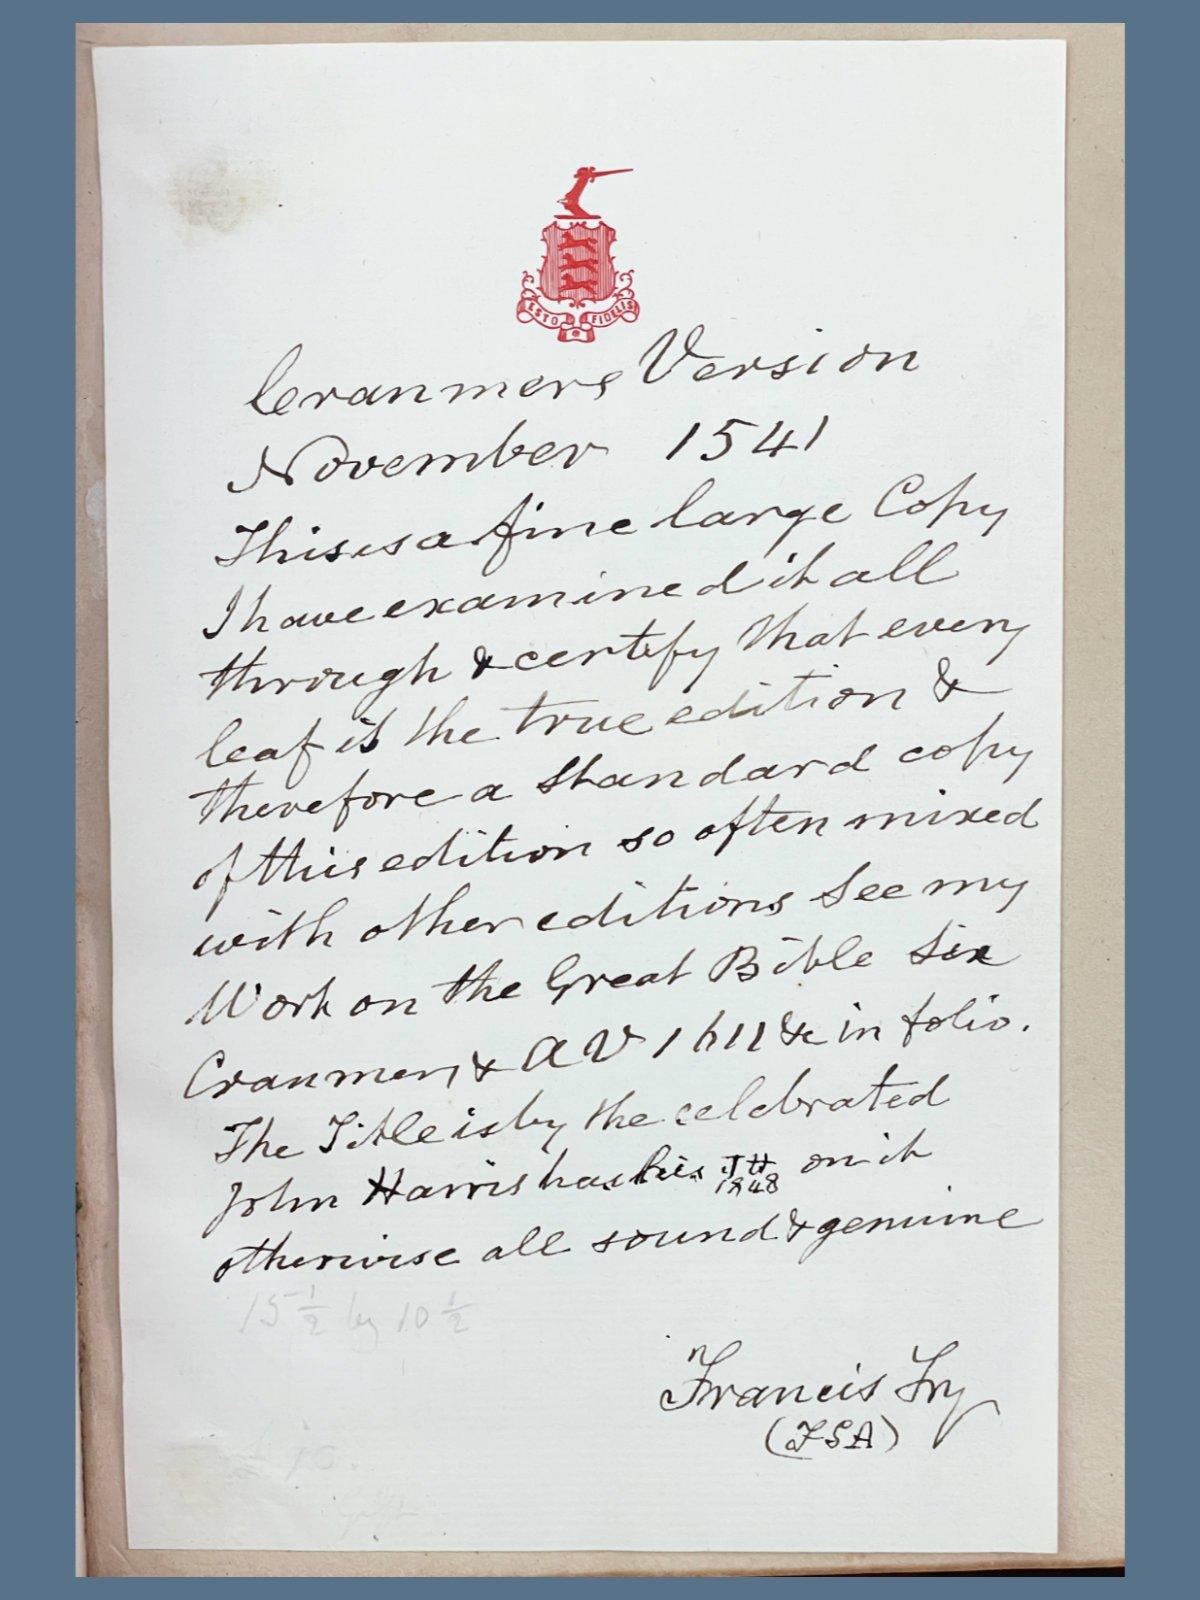 ESTO FIDELIS
Cranmers Version
November 1541
This is a fine large Copy
I have examined it all
through & certify that every
leaf is the true edition &
therefore a standard copy
of this edition so often mixed
with other editions See my
Work on the Great Bible Six
Cranmers & AV 1611 &c in folio.
The Title is by the celebrated
John Harris has his JH on it
1848
otherwise all sound & genuine
15 1/2 by 10 1/2
Francis Fry
(FSA)